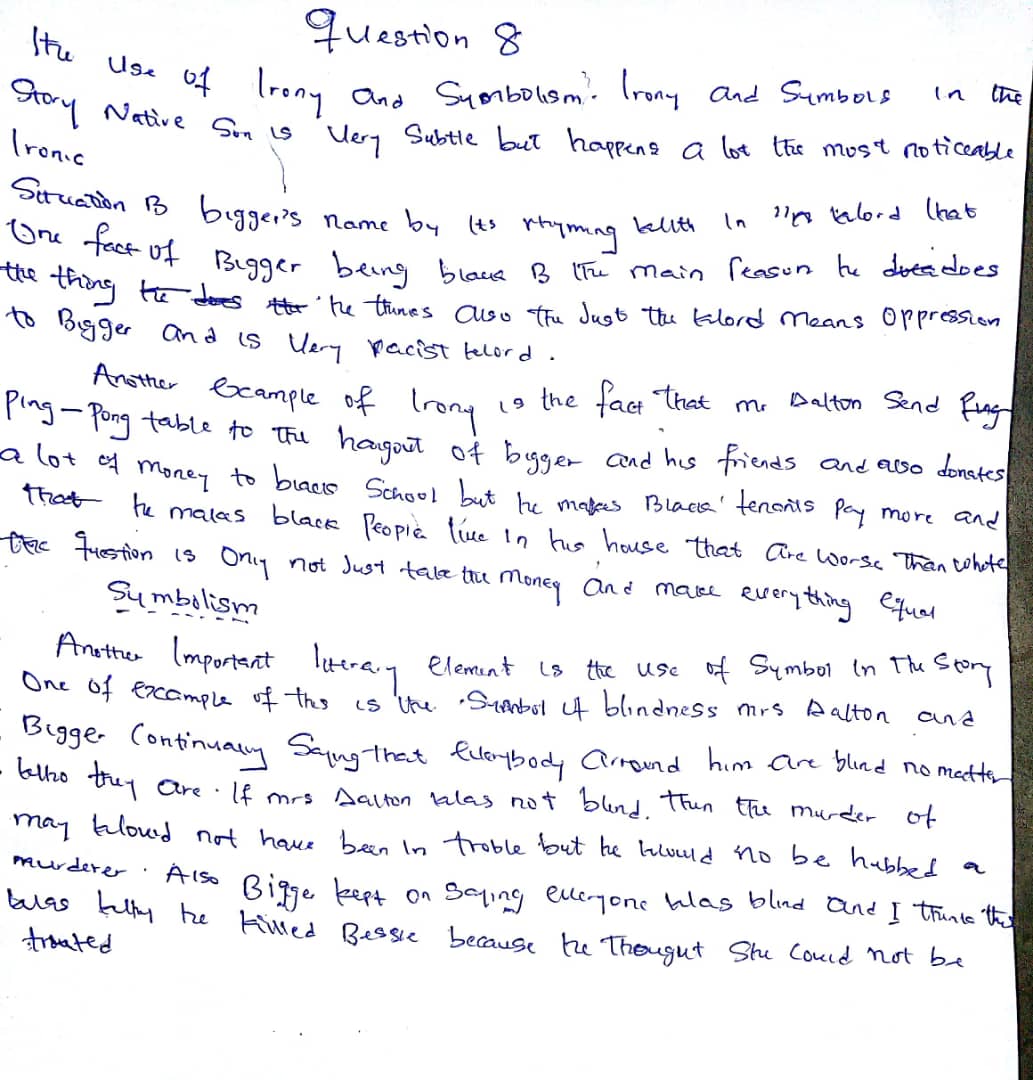 Question 8
The use of Irony and Symbolism. Irony and Symbols in the
Story Native Son is Very Subtle but happens a lot the most noticeable
Ironic
Situation is bigger's name by its rhyming with In word that
One fact of Bigger being black is the main reason he does
the thing he does he thinks also the Just the word means oppression
to Bigger and is Very racist word.
Another Example of Irony is the fact that mr Dalton Send
Ping-Pong table to the hangout of bigger and his friends and also donates
a lot of money to blacks School but he makes Black' tenants Pay more and
that he makes black People live in his house that are worse Than white
question is Only not Just take the money and make everything equal
Symbolism
Another Important literary Element is the use of Symbol In The Story
One of example of this is the Symbol of blindness mrs Dalton and
Bigger Continually Saying that Everybody arround him are blind no matter
who they are. If mrs Dalton was not blind, then the murder of
may would not have been In troble but he would no be hubbed a
murderer. Also Bigge kept on saying everyone was blind and I think this
was why he killed Bessie because he Thought She Could not be
troated